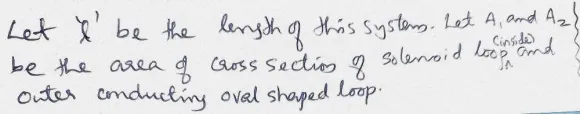 Let 'l' be the length of this system. Let A₁ and A₂
be the area of cross section of solenoid loop (inside) and
outer conducting oval shaped loop.